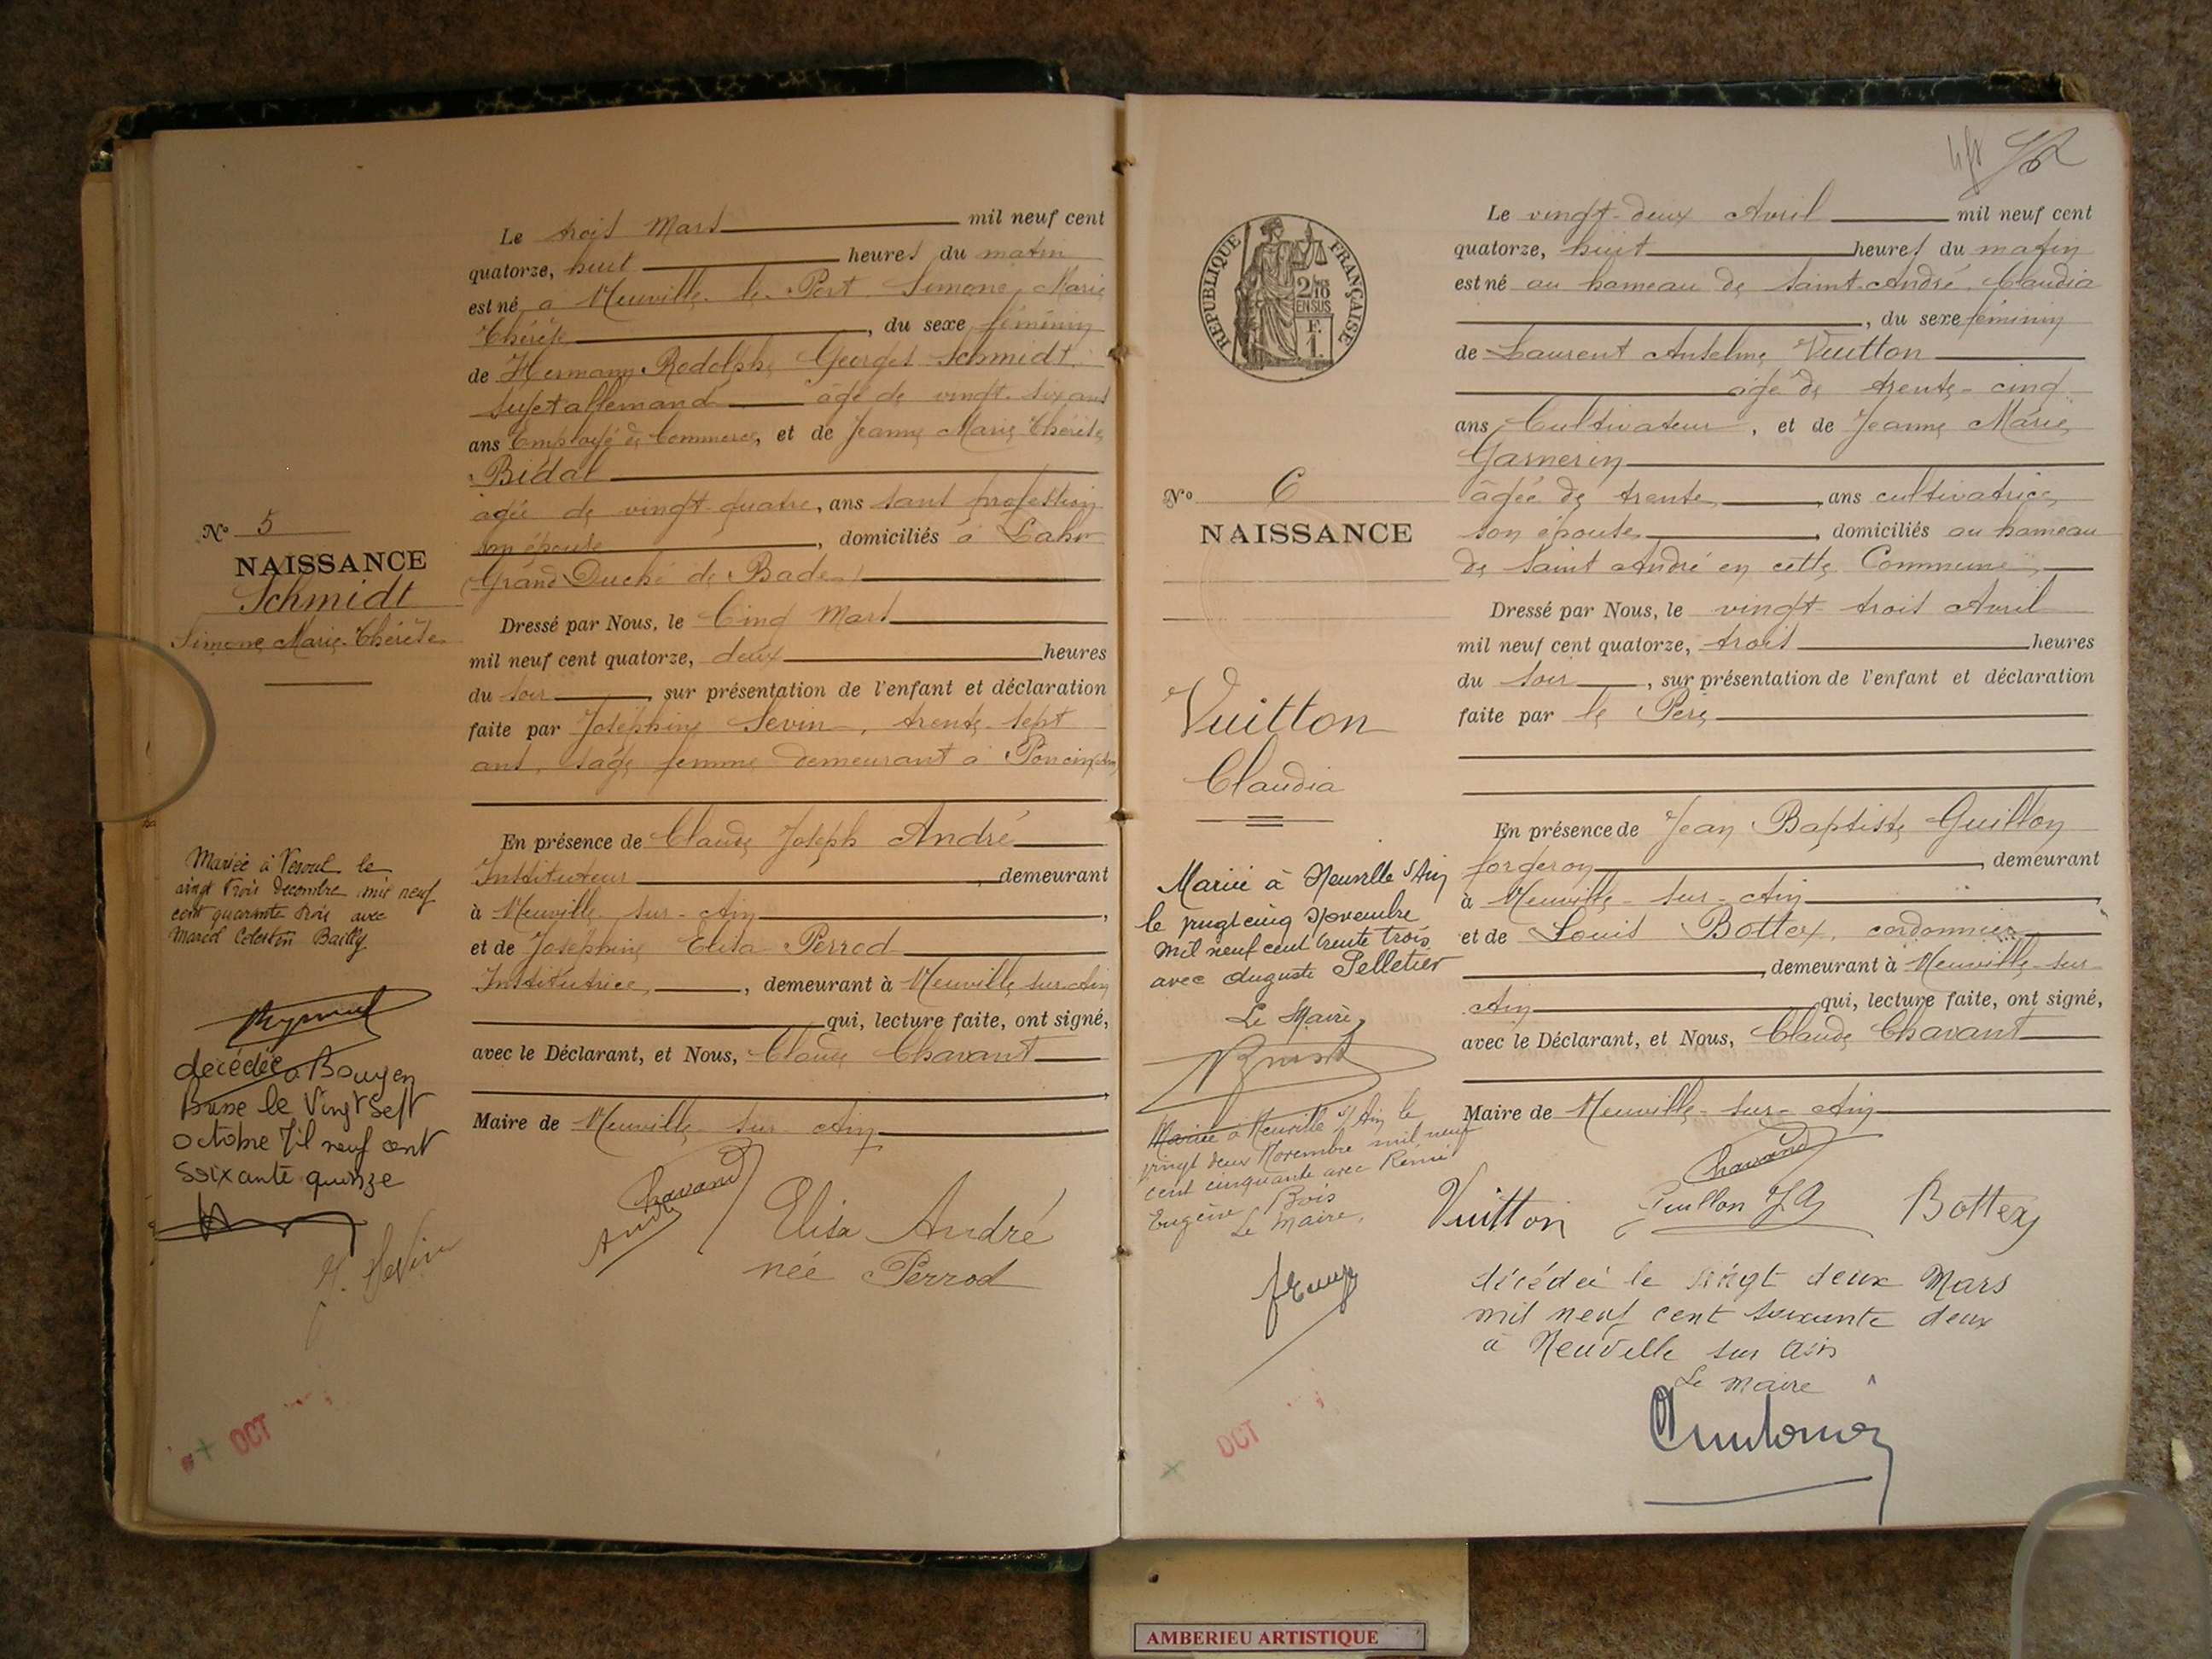 Le trois Mars mil neuf cent
quatorze, huit heures du matin
est né a Neuville-le-Port Simone, Marie
Thérèse, du sexe féminin
de Hermann Rodolphe Georges Schmidt,
sujet allemand âgé de vingt-six ans
ans Employé de Commerce, et de Jeanne Marie Thérèse
Bidal
agée de vingt-quatre, ans sans profession
son épouse, domiciliés à Lahr
Grand Duché de Bade
Dressé par Nous, le Cinq Mars
mil neuf cent quatorze, deux heures
du soir, sur présentation de l'enfant et déclaration
faite par Joséphine Sevin, trente-sept
ans, sage femme demeurant à Poncin
En présence de Claude Joseph André
Instituteur, demeurant
à Neuville-sur-Ain,
et de Joséphine Elisa Perrod
Institutrice, demeurant à Neuville sur Ain
qui, lecture faite, ont signé,
avec le Déclarant, et Nous, Claude Chavant
Maire de Neuville-sur-Ain
Chavand
André
Elisa André
née Perrod
N° 5
NAISSANCE
Schmidt
Simone Marie-Thérèse
Mariée à Vesoul le
vingt trois décembre mil neuf
cent quarante trois avec
Marcel Celestin Bailly
décédée a Bouyen
Brise le Vingt Sept
octobre Mil neuf cent
Soixante quinze
OCT
Le vingt-deux Avril mil neuf cent
quatorze, huit heures du matin
est né au hameau de Saint-André, Claudia
, du sexe féminin
de Laurent Anselme Vuitton
âgé de trente-cinq
ans, Cultivateur, et de Jeanne Marie
Garnerin
âgée de trente, ans cultivatrice,
son épouse, domiciliés au hameau
de Saint André en cette Commune,
Dressé par Nous, le vingt-trois Avril
mil neuf cent quatorze, trois heures
du soir, sur présentation de l'enfant et déclaration
faite par le Père
En présence de Jean Baptiste Guillon
forgeron, demeurant
à Neuville-sur-Ain,
et de Louis Bottex, cordonnier
, demeurant à Neuville-sur-
Ain qui, lecture faite, ont signé,
avec le Déclarant, et Nous, Claude Chavant
Maire de Neuville-sur-Ain
Chavand
Vuitton Guillon Bottex
décédée le vingt deux Mars
mil neuf cent soixante deux
à Neuville sur Ain
Le maire
REPUBLIQUE FRANÇAISE
2/10 EN SUS
F. 1.
N° 6
NAISSANCE
Vuitton
Claudia
Mariée à Neuville s/Ain
le vingt cinq Novembre
mil neuf cent trente trois
avec Auguste Pelletier
Le Maire
Mariée à Neuville s/ Ain le
vingt deux Novembre mil neuf
cent cinquante avec Rémi
Eugène Bois
Le Maire,
OCT
AMBERIEU ARTISTIQUE